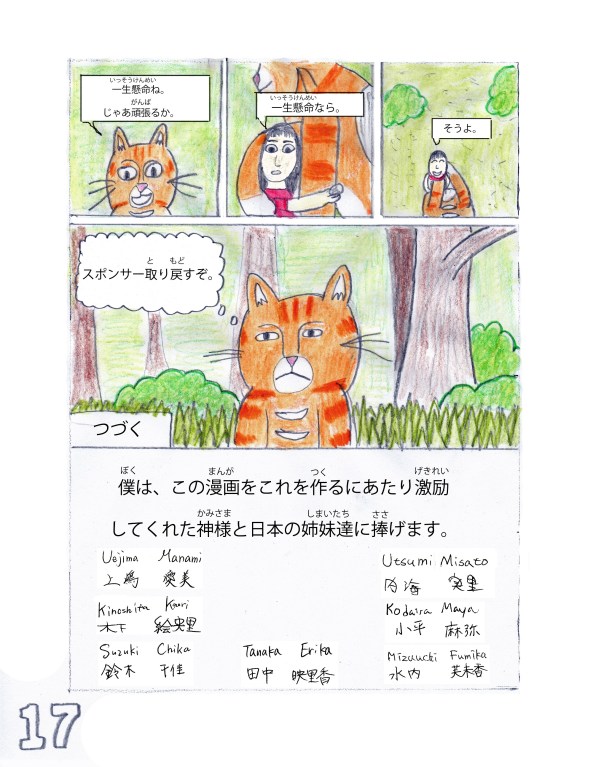 いっそうけんめい
一生懸命ね。
がんば
じゃあ頑張るか。
いっそうけんめい
一生懸命なら。
そうよ。
と もど
スポンサー取り戻すぞ。
つづく
ぼく まんが つく げきれい
僕は、この漫画をこれを作るにあたり激励
かみさま しまいたち ささ
してくれた神様と日本の姉妹達に捧げます。
Uejima Manami
上 愛美
Utsumi Misato
内海 実里
Kinoshita Kaori
木下 絵央里
Kodaira Maya
小平 麻弥
Suzuki Chika
鈴木 千佳
Tanaka Erika
田中 映里香
Mizuuchi Fumika
水内 芙未香
17